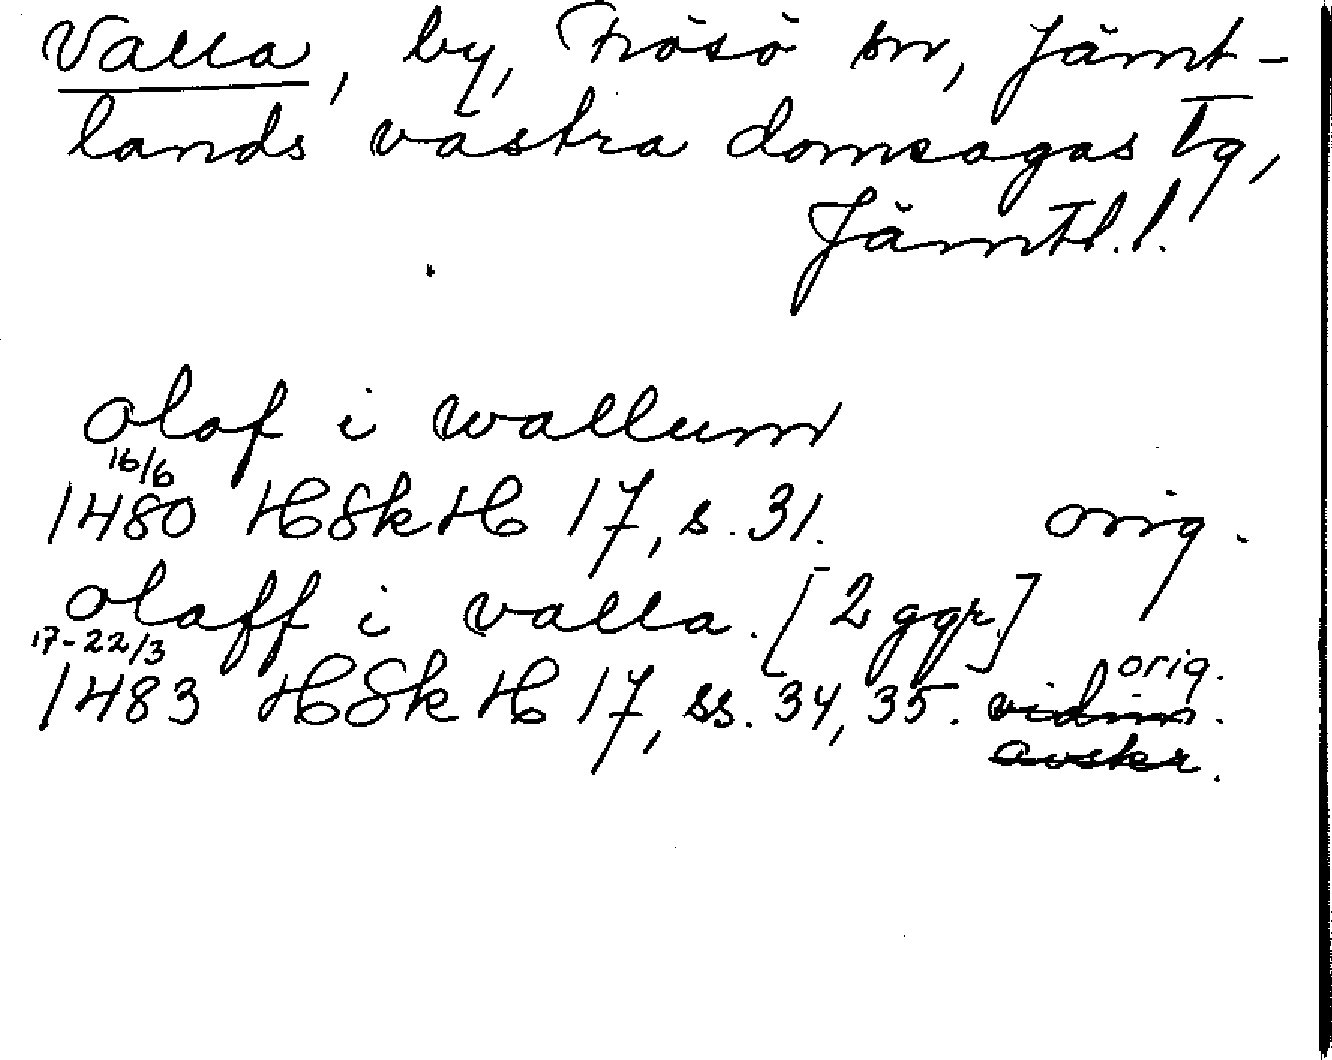 Valla, by, Frösö sn, Jämt-
lands västra domsagas tg,
Jämtl. l.
olof i wallum
16/6
1480 HSkH 17, s. 31. orig.
olaff i valla. [2 ggr.]
17-22/3
1483 HSkH 17, ss. 34, 35. vidim. orig.
avskr.